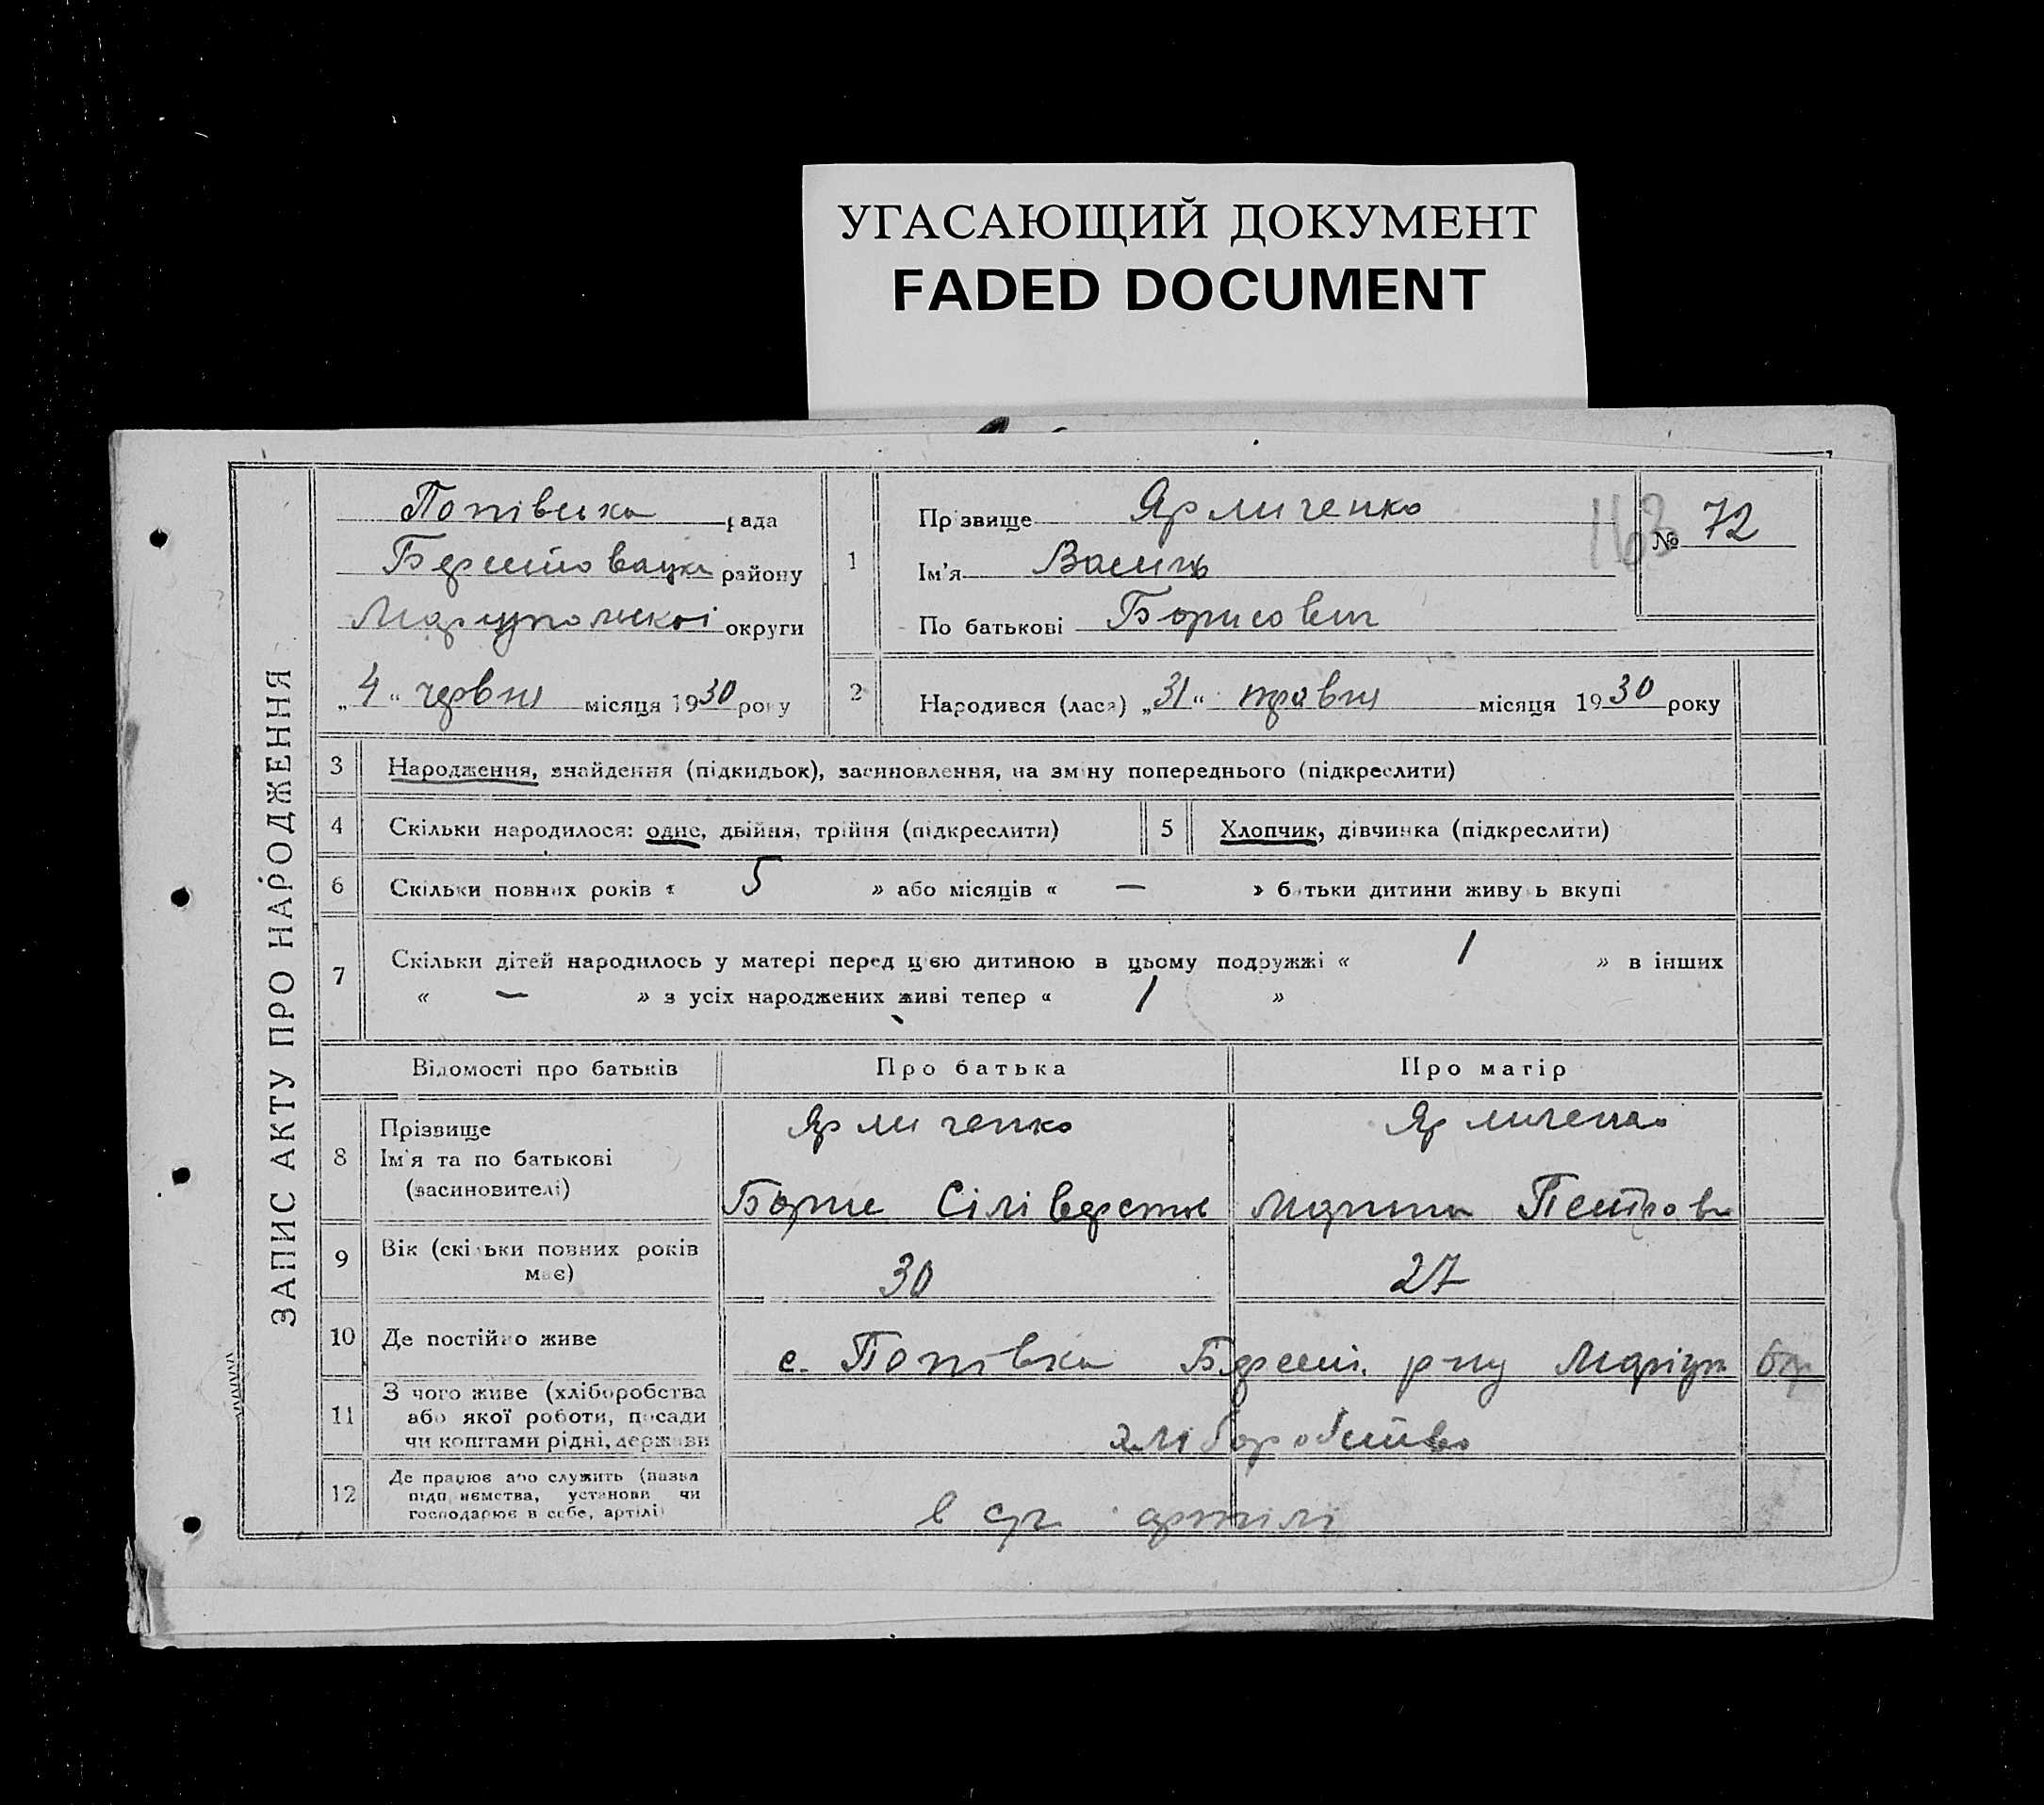 УГАСАЮЩИЙ ДОКУМЕНТ
FADED DOCUMENT
ЗАПИС АКТУ ПРО НАРОДЖЕННЯ
Попівська рада
району
округи
„4“ червня місяця 1930 року
1
Прізвище Ярмиченко
Ім'я Василь
По батькові Борисович
№ 72
2 Народився (лася) „31“ травня місяця 1930 року
3 Народження, знайдення (підкидьок), засиновлення, на зміну попереднього (підкреслити)
4 Скільки народилося: одне, двійня, трійня (підкреслити)
5 Хлопчик, дівчинка (підкреслити)
6 Скільки повних років « 5 » або місяців « — » батьки дитини живуть вкупі
7 Скільки дітей народилось у матері перед цією дитиною в цьому подружжі « 1 » в інших
« — » з усіх народжених живі тепер « 1 »
Відомості про батьків Про батька Про матір
8 Прізвище Ярмиченко Ярмиченко
Ім'я та по батькові
(засиновителі) Борис Сіліверстов Петрова
9 Вік (скільки повних років
має) 30 27
10 Де постійно живе с. Попівка р-ну
11 З чого живе (хліборобства
або якої роботи, посади
чи коштами рідні, держави хліборобство
12 Де працює або служить (назва
підприємства, установи чи
господарює в себе, артілі) в артілі